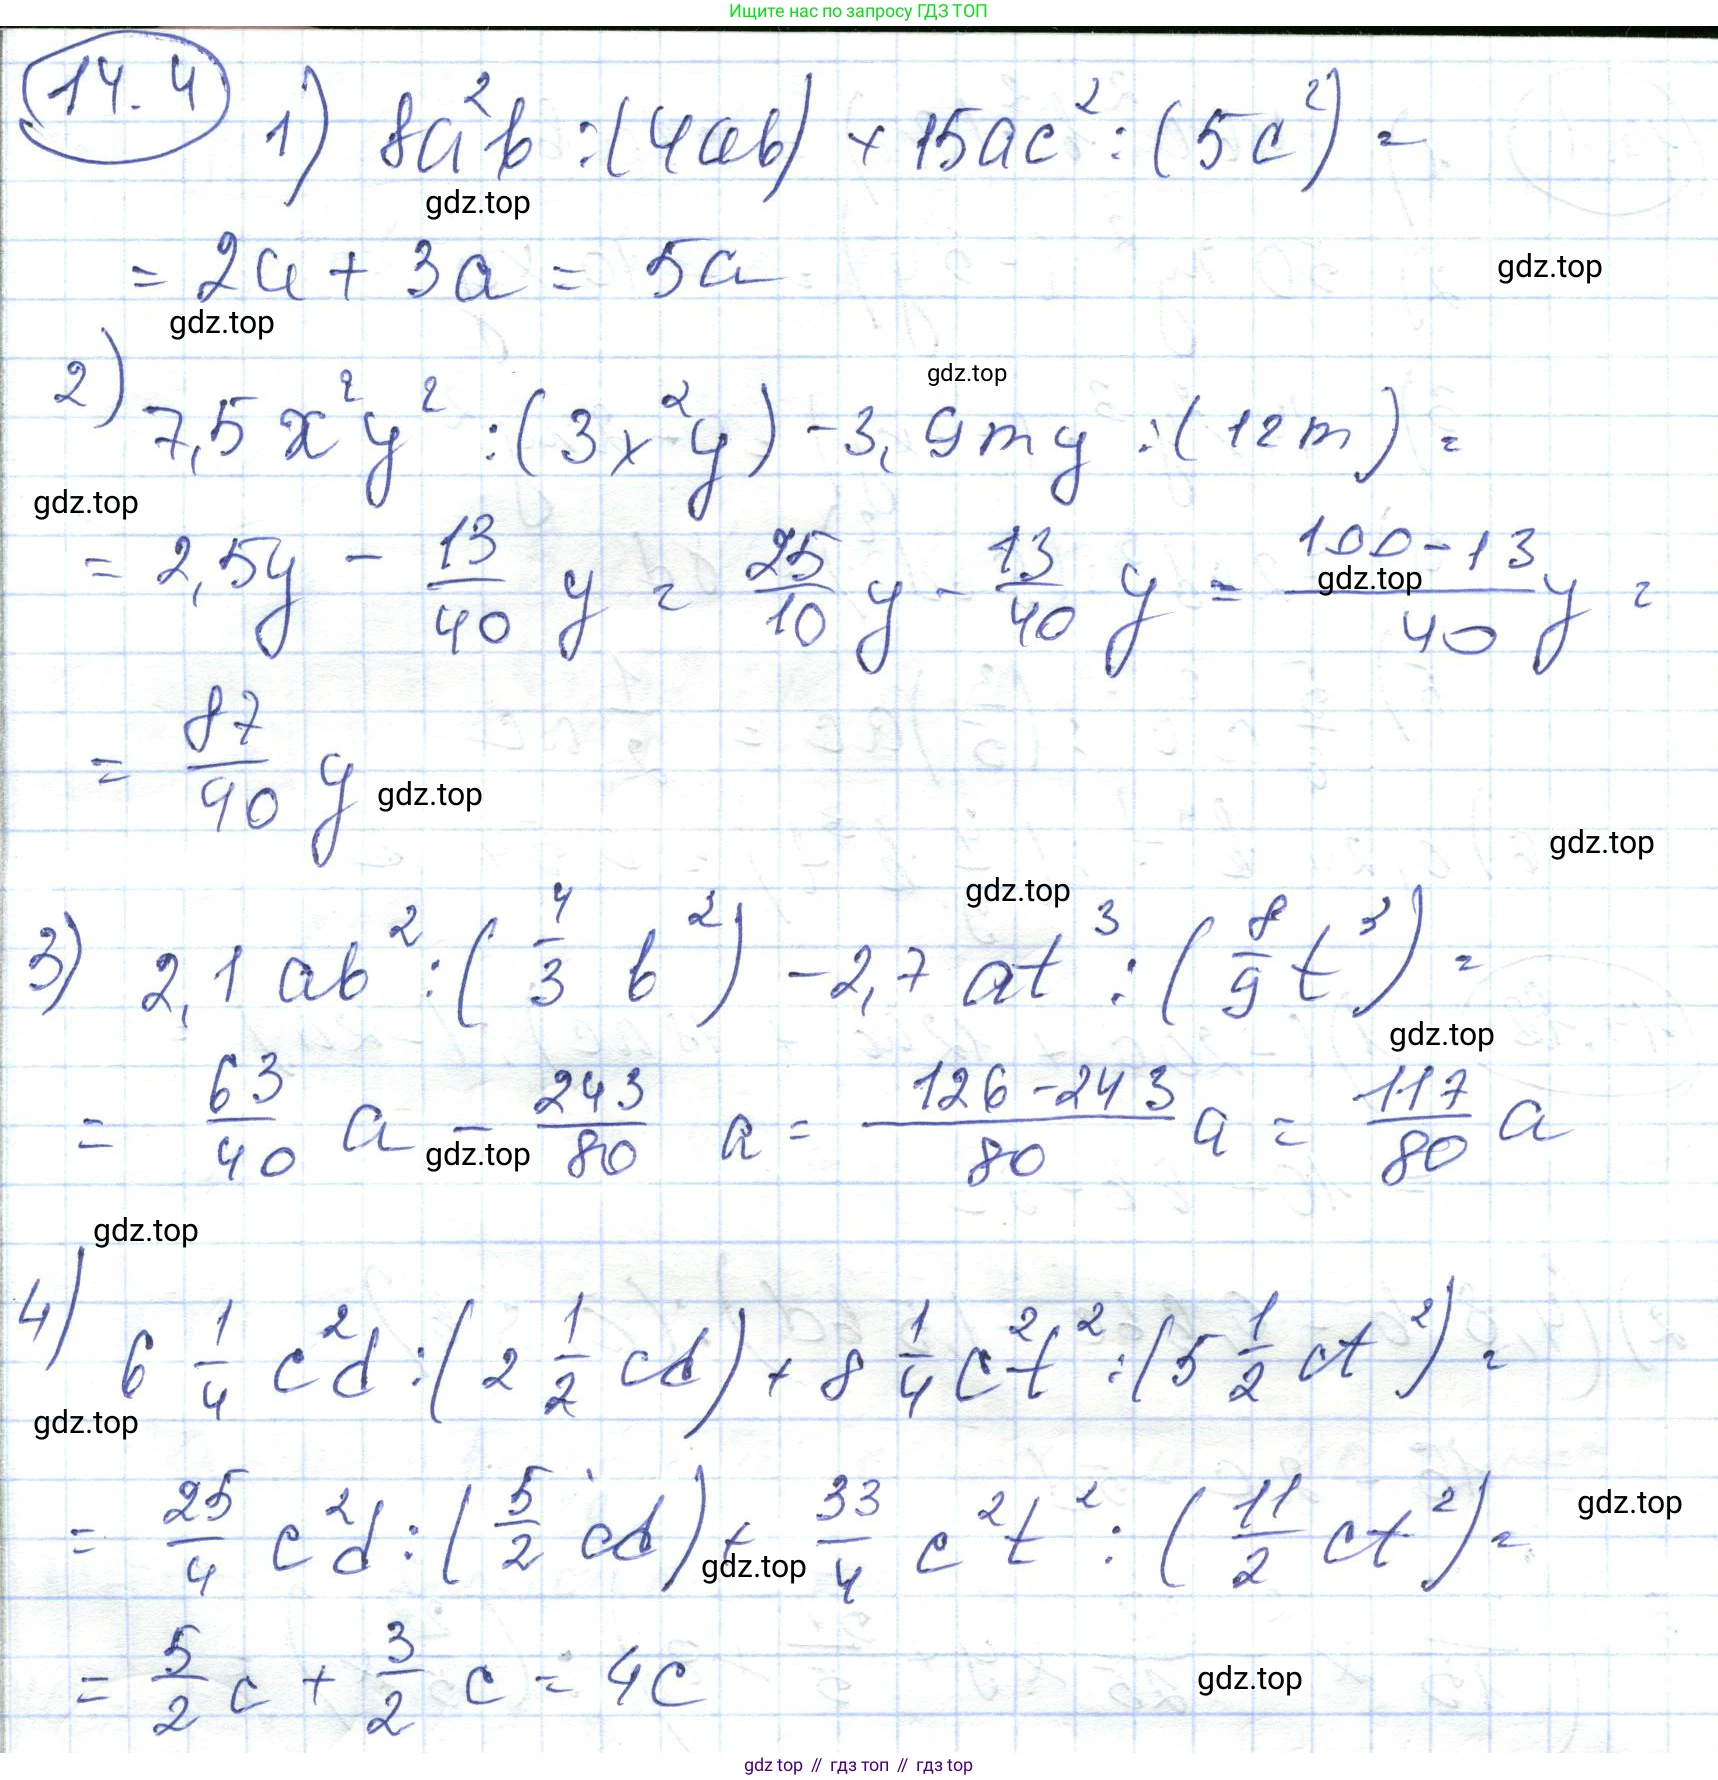 Ищите нас по запросу ГДЗ ТОП
14.4
1) 8a²b : (4ab) + 15ac² : (5c²) =
gdz.top
= 2a + 3a = 5a
gdz.top
gdz.top
gdz.top
2) 7,5x²y² : (3x²y) - 3,9my : (12m) =
gdz.top
= 2,5y - 13/40 y = 25/10 y - 13/40 y = (100-13)/40 y =
gdz.top
= 87/40 y
gdz.top
gdz.top
gdz.top
3) 2,1ab² : (4/3 b²) - 2,7at³ : (8/9 t³) =
gdz.top
= 63/40 a - 243/80 a = (126-243)/80 a = 117/80 a
gdz.top
gdz.top
4) 6 1/4 c²d : (2 1/2 cd) + 8 1/4 c²t² : (5 1/2 ct²) =
gdz.top
= 25/4 c²d : (5/2 cd) + 33/4 c²t² : (11/2 ct²) =
gdz.top
gdz.top
= 5/2 c + 3/2 c = 4c
gdz.top
gdz top // гдз топ // gdz top